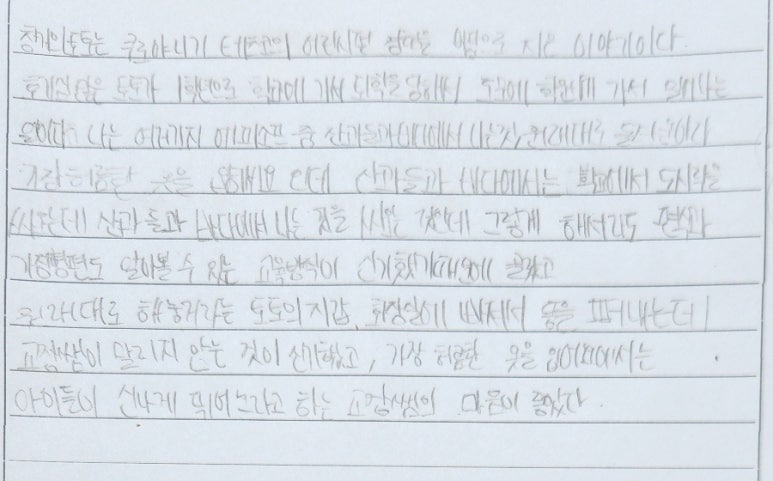 창가의토토는 쿠로야나기 테츠코의 어린시절 을 바탕으로 지은 이야기이다.
호기심 많은 토토가 1학년으로 학교에 가서 퇴학을 당해서 도모에 학원에 가서 일어나는
일이다. 나는 여러가지 에피소드 중 산과들과바다에서 나는것, 원래대로
가장허름한 옷을 입히세요 인데 산과들과 바다에서는 학교에서 도시락을
싸는데 산과 들과 바다에서 나는 것을 싸는 것인데 그렇게 해서라도 편식과
가정형편도 알아볼 수 있는 교육방식이 신기했기때문에 골랐고
원래대로 해놓거라는 토토의지갑, 화장실에 빠져서 똥을 퍼내는데
교장쌤이 말리지 않는 것이 신기했고, 가장 허름한 옷을 에서는
아이들이 신나게 뛰어노라고 하는 교장쌤의 마음이 좋았다.